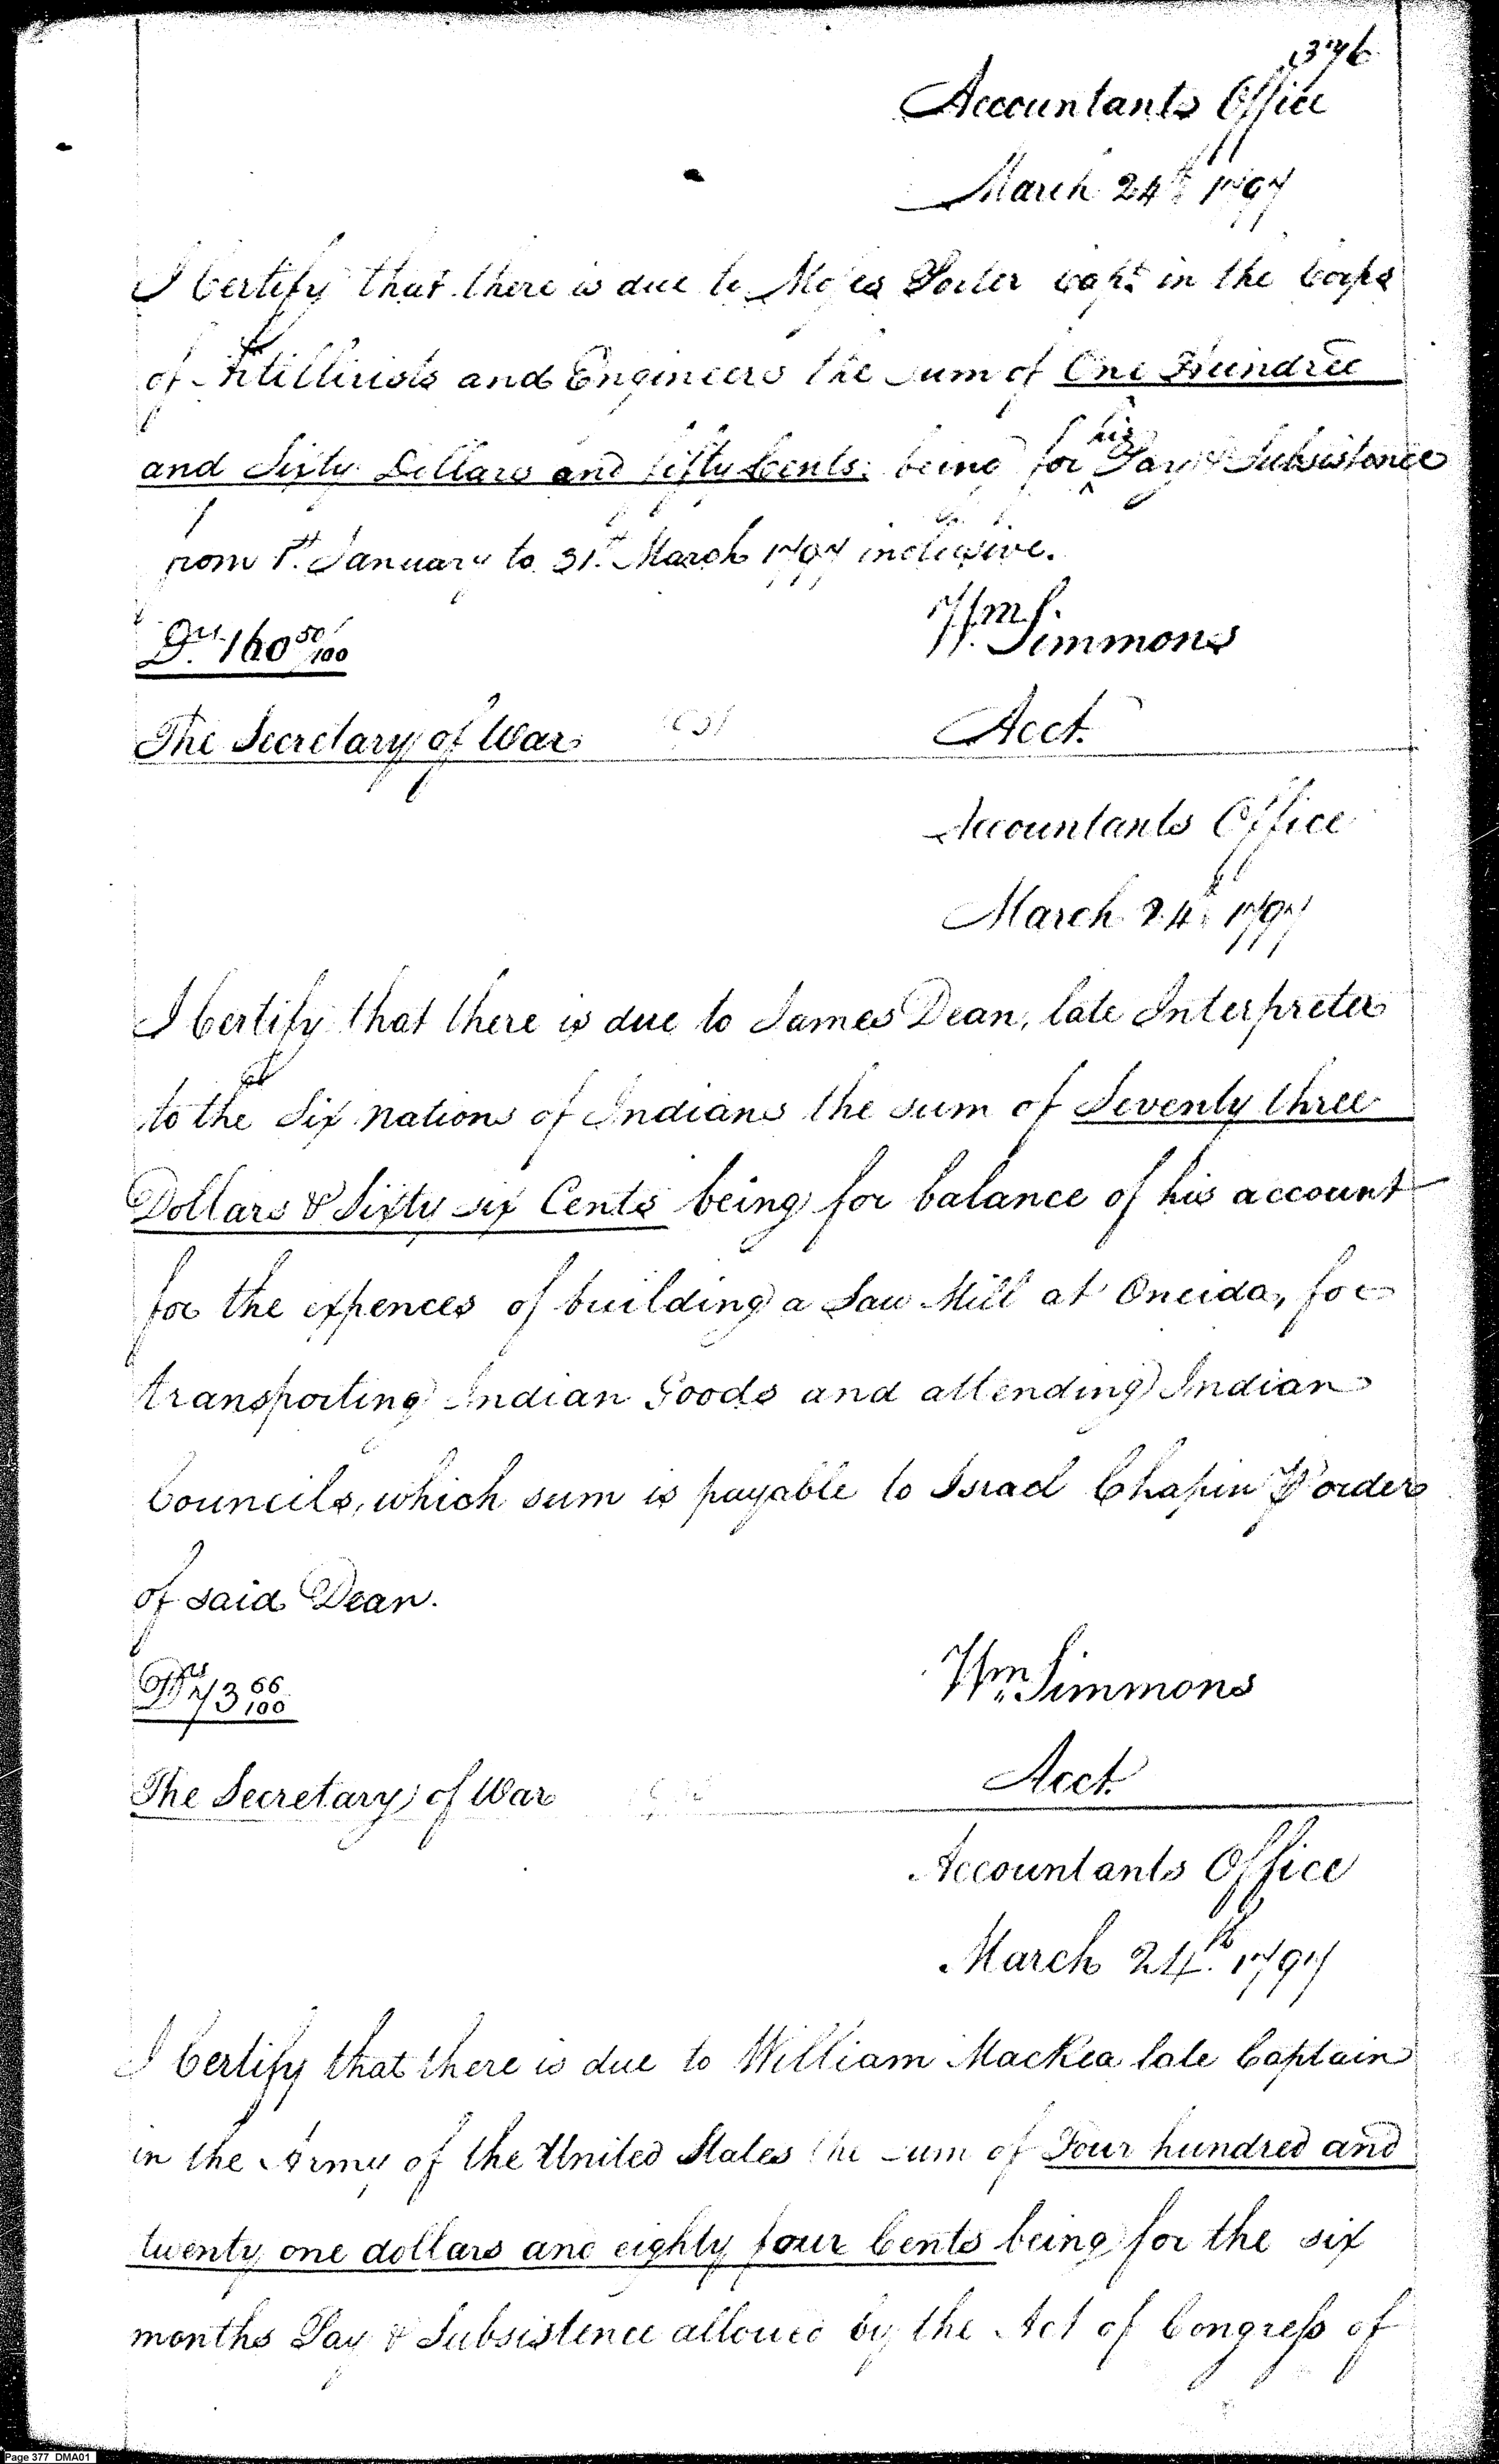 376
Accountants Office
March 24th 1797
I Certify that there is due to Moses Porter Capt. in the Corps
of Artillirists and Engineers the sum of One Hundred
and Sixty Dollars and fifty Cents; being for his Pay & Subsistance
from 1st. January to 31st. March 1797 inclusive.
Drs. 160 50/100
Wm. Simmons
The Secretary of War
Acct.
Accountants Office
March 24th 1797
I Certify that there is due to James Dean, late Interpreter
to the Six Nations of Indians the sum of Seventy three
Dollars & Sixty six Cents being for balance of his account
for the expences of building a Saw Mill at Oneida, for
transporting Indian Goods and attending Indian
Councils, which sum is payable to Israel Chapin P order
of said Dean.
Drs 73 66/100
Wm. Simmons
The Secretary of War
Acct.
Accountants Office
March 24th. 1797
I Certify that there is due to William MacKea late Captain
in the Army of the United States the sum of Four hundred and
twenty one dollars and eighty four Cents being for the six
months Pay & Subsistence allowed by the Act of Congress of
Page 377 DMA01